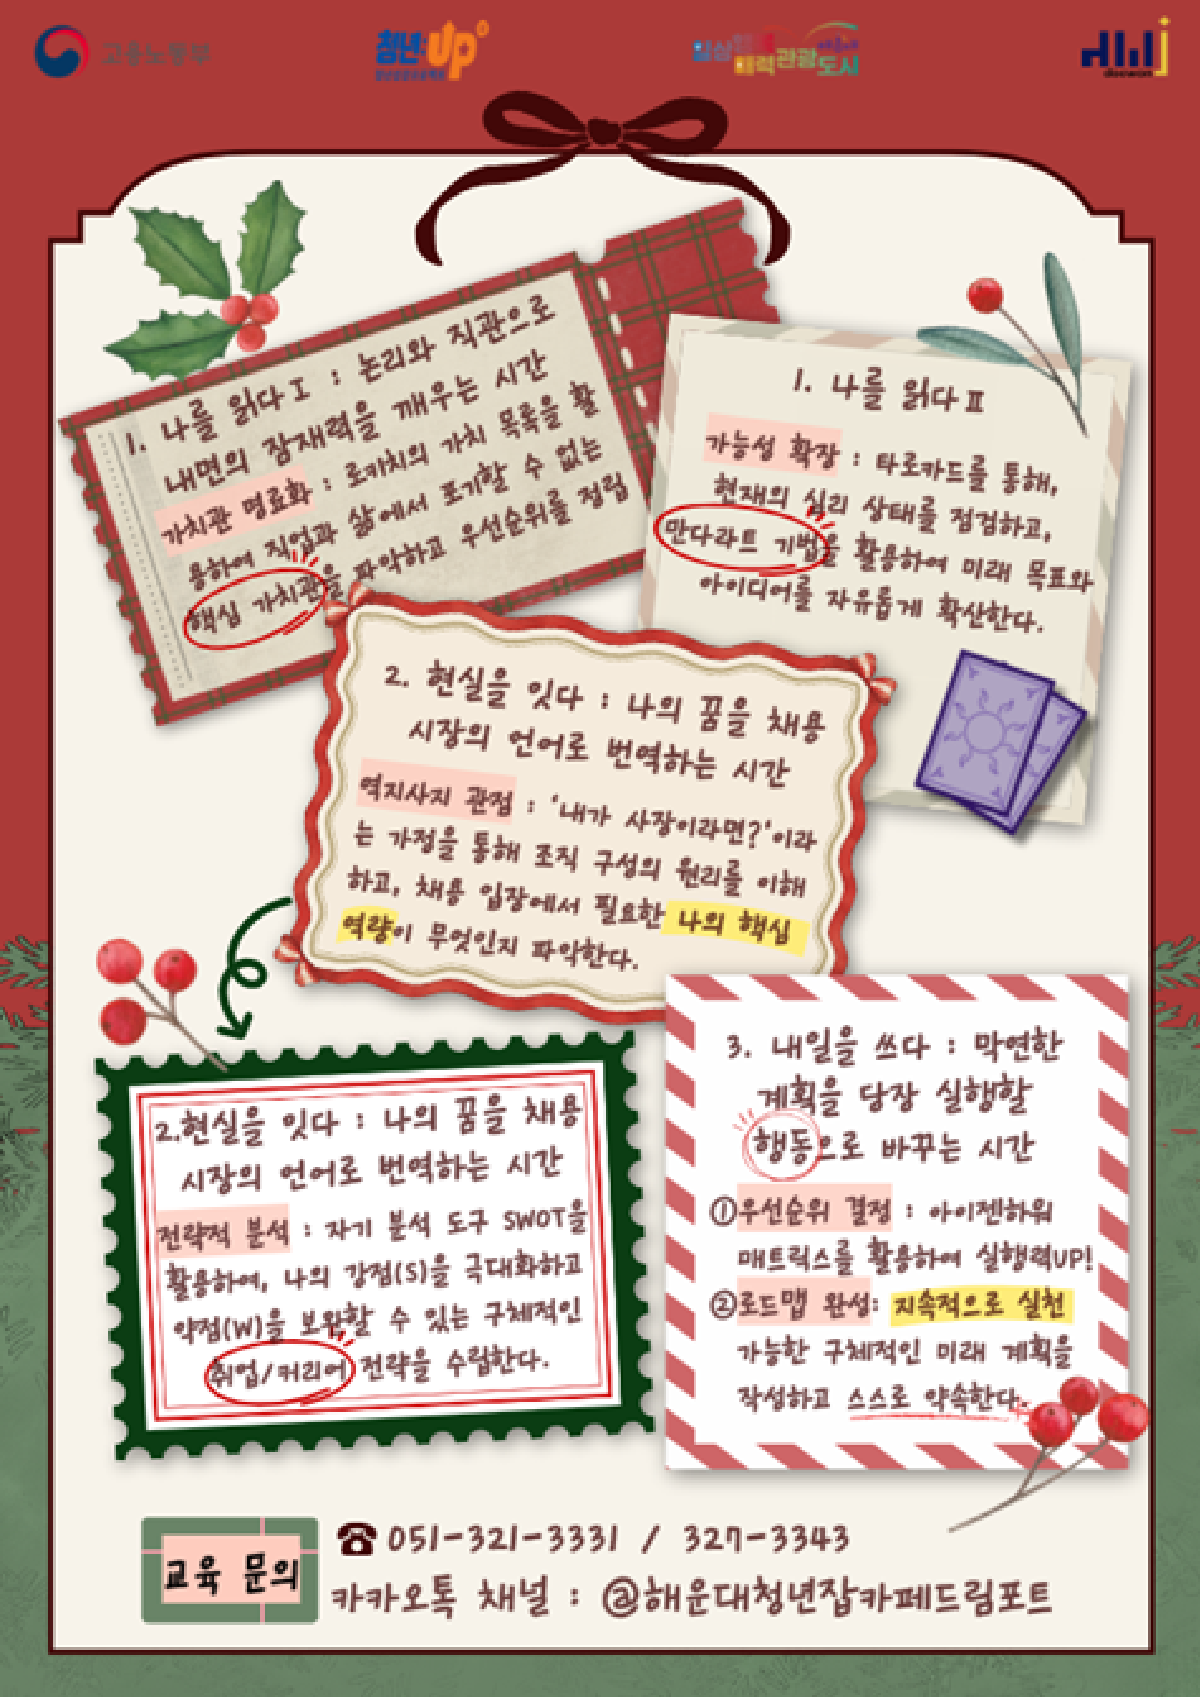 고용노동부
청년UP
관광도시
1. 나를 읽다Ⅰ : 논리와 직관으로
내면의 잠재력을 깨우는 시간
가치관 명료화 : 로키치의 가치 목록을 활
용하여 직업과 삶에서 포기할 수 없는
핵심 가치관을 파악하고 우선순위를 정립
1. 나를 읽다Ⅱ
가능성 확장 : 타로카드를 통해,
현재의 심리 상태를 점검하고,
만다라트 기법을 활용하여 미래 목표와
아이디어를 자유롭게 확산한다.
2. 현실을 잇다 : 나의 꿈을 채용
시장의 언어로 번역하는 시간
역지사지 관점 : '내가 사장이라면?'이라
는 가정을 통해 조직 구성의 원리를 이해
하고, 채용 입장에서 필요한 나의 핵심
역량이 무엇인지 파악한다.
2.현실을 잇다 : 나의 꿈을 채용
시장의 언어로 번역하는 시간
전략적 분석 : 자기 분석 도구 SWOT을
활용하여, 나의 강점(S)을 극대화하고
약점(W)을 보완할 수 있는 구체적인
취업/커리어 전략을 수립한다.
3. 내일을 쓰다 : 막연한
계획을 당장 실행할
행동으로 바꾸는 시간
①우선순위 결정 : 아이젠하워
매트릭스를 활용하여 실행력UP!
②로드맵 완성: 지속적으로 실천
가능한 구체적인 미래 계획을
작성하고 스스로 약속한다.
교육 문의
☎ 051-321-3331 / 327-3343
카카오톡 채널 : @해운대청년잡카페드림포트